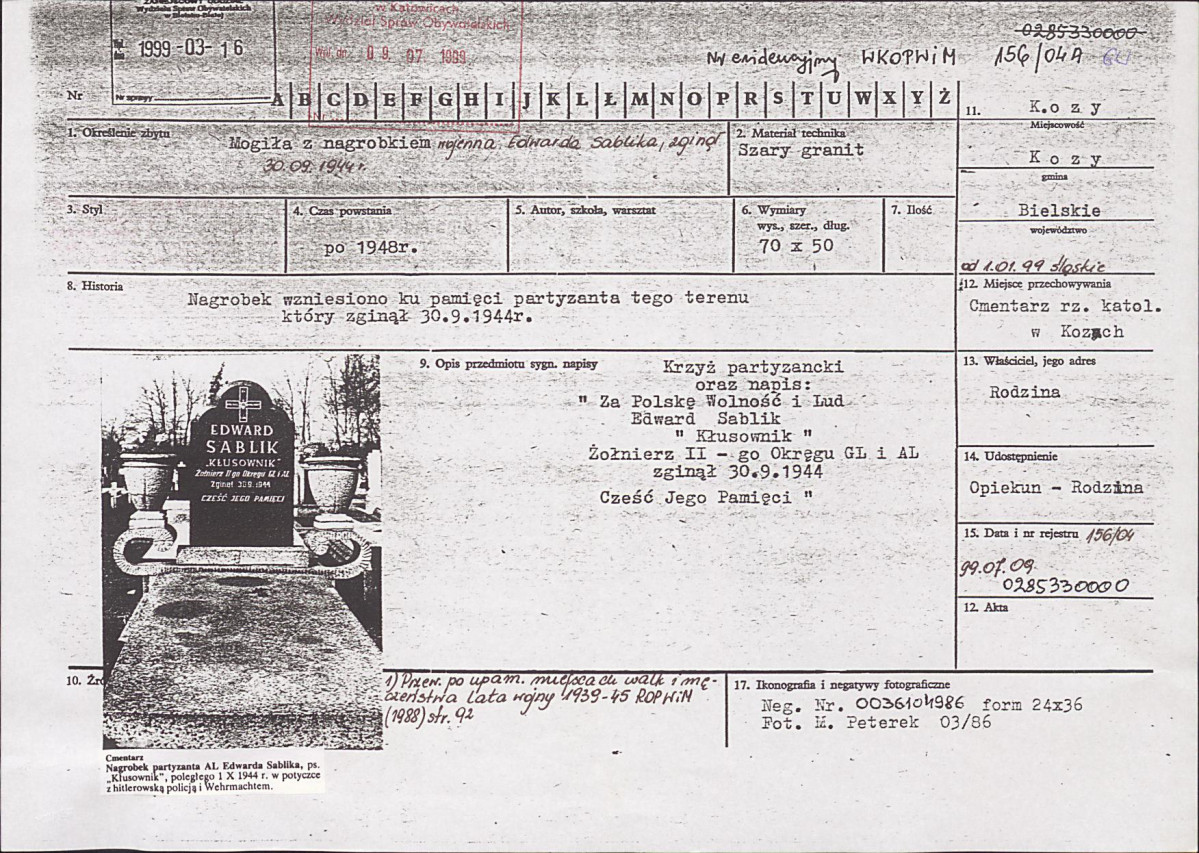 Wydziału Spraw Obywatelskich
w Bielsku-Białej
1999 -03- 16
Nr sprawy
w Katowicach
Wydział Spraw Obywatelskich
09. 07 1999
Nr ewidencyjny WKOPWiM 156/04A
0285330000
Nr
A B C D E F G H I J K L Ł M N O P R S T U W X Y Ż
1. Określenie zbytu
Mogiła z nagrobkiem wojenna Edwarda Sablika, zginął
30.09.1944r.
2. Materiał technika
Szary granit
3. Styl
4. Czas powstania
po 1948r.
5. Autor, szkoła, warsztat
6. Wymiary
wys., szer., dług.
70 x 50
7. Ilość
8. Historia
Nagrobek wzniesiono ku pamięci partyzanta tego terenu
który zginął 30.9.1944r.
9. Opis przedmiotu sygn. napisy
Krzyż partyzancki
oraz napis:
" Za Polskę Wolność i Lud
Edward Sablik
" Kłusownik "
Żołnierz II - go Okręgu GL i AL
zginął 30.9.1944
Cześć Jego Pamięci "
EDWARD
SABLIK
„KŁUSOWNIK"
Żołnierz II go Okręgu GL i AL
Zginął 30.9.1944
CZEŚĆ JEGO PAMIĘCI
Cmentarz
Nagrobek partyzanta AL Edwarda Sablika, ps.
„Kłusownik", poległego 1 X 1944 r. w potyczce
z hitlerowską policją i Wehrmachtem.
10. Źró
1) Przew. po upam. miejscach walk i mę-
czeństwa lata wojny 1939-45 ROPWiM
(1988) str. 92
11.
K.o z y
Miejscowość
K o z y
gmina
Bielskie
województwo
od 1.01.99 śląskie
12. Miejsce przechowywania
Cmentarz rz. katol.
w Kozach
13. Właściciel, jego adres
Rodzina
14. Udostępnienie
Opiekun - Rodzina
15. Data i nr rejestru 156/04
99.07.09
0285330000
12. Akta
17. Ikonografia i negatywy fotograficzne
Neg. Nr. 0036104986 form 24x36
Fot. M. Peterek 03/86